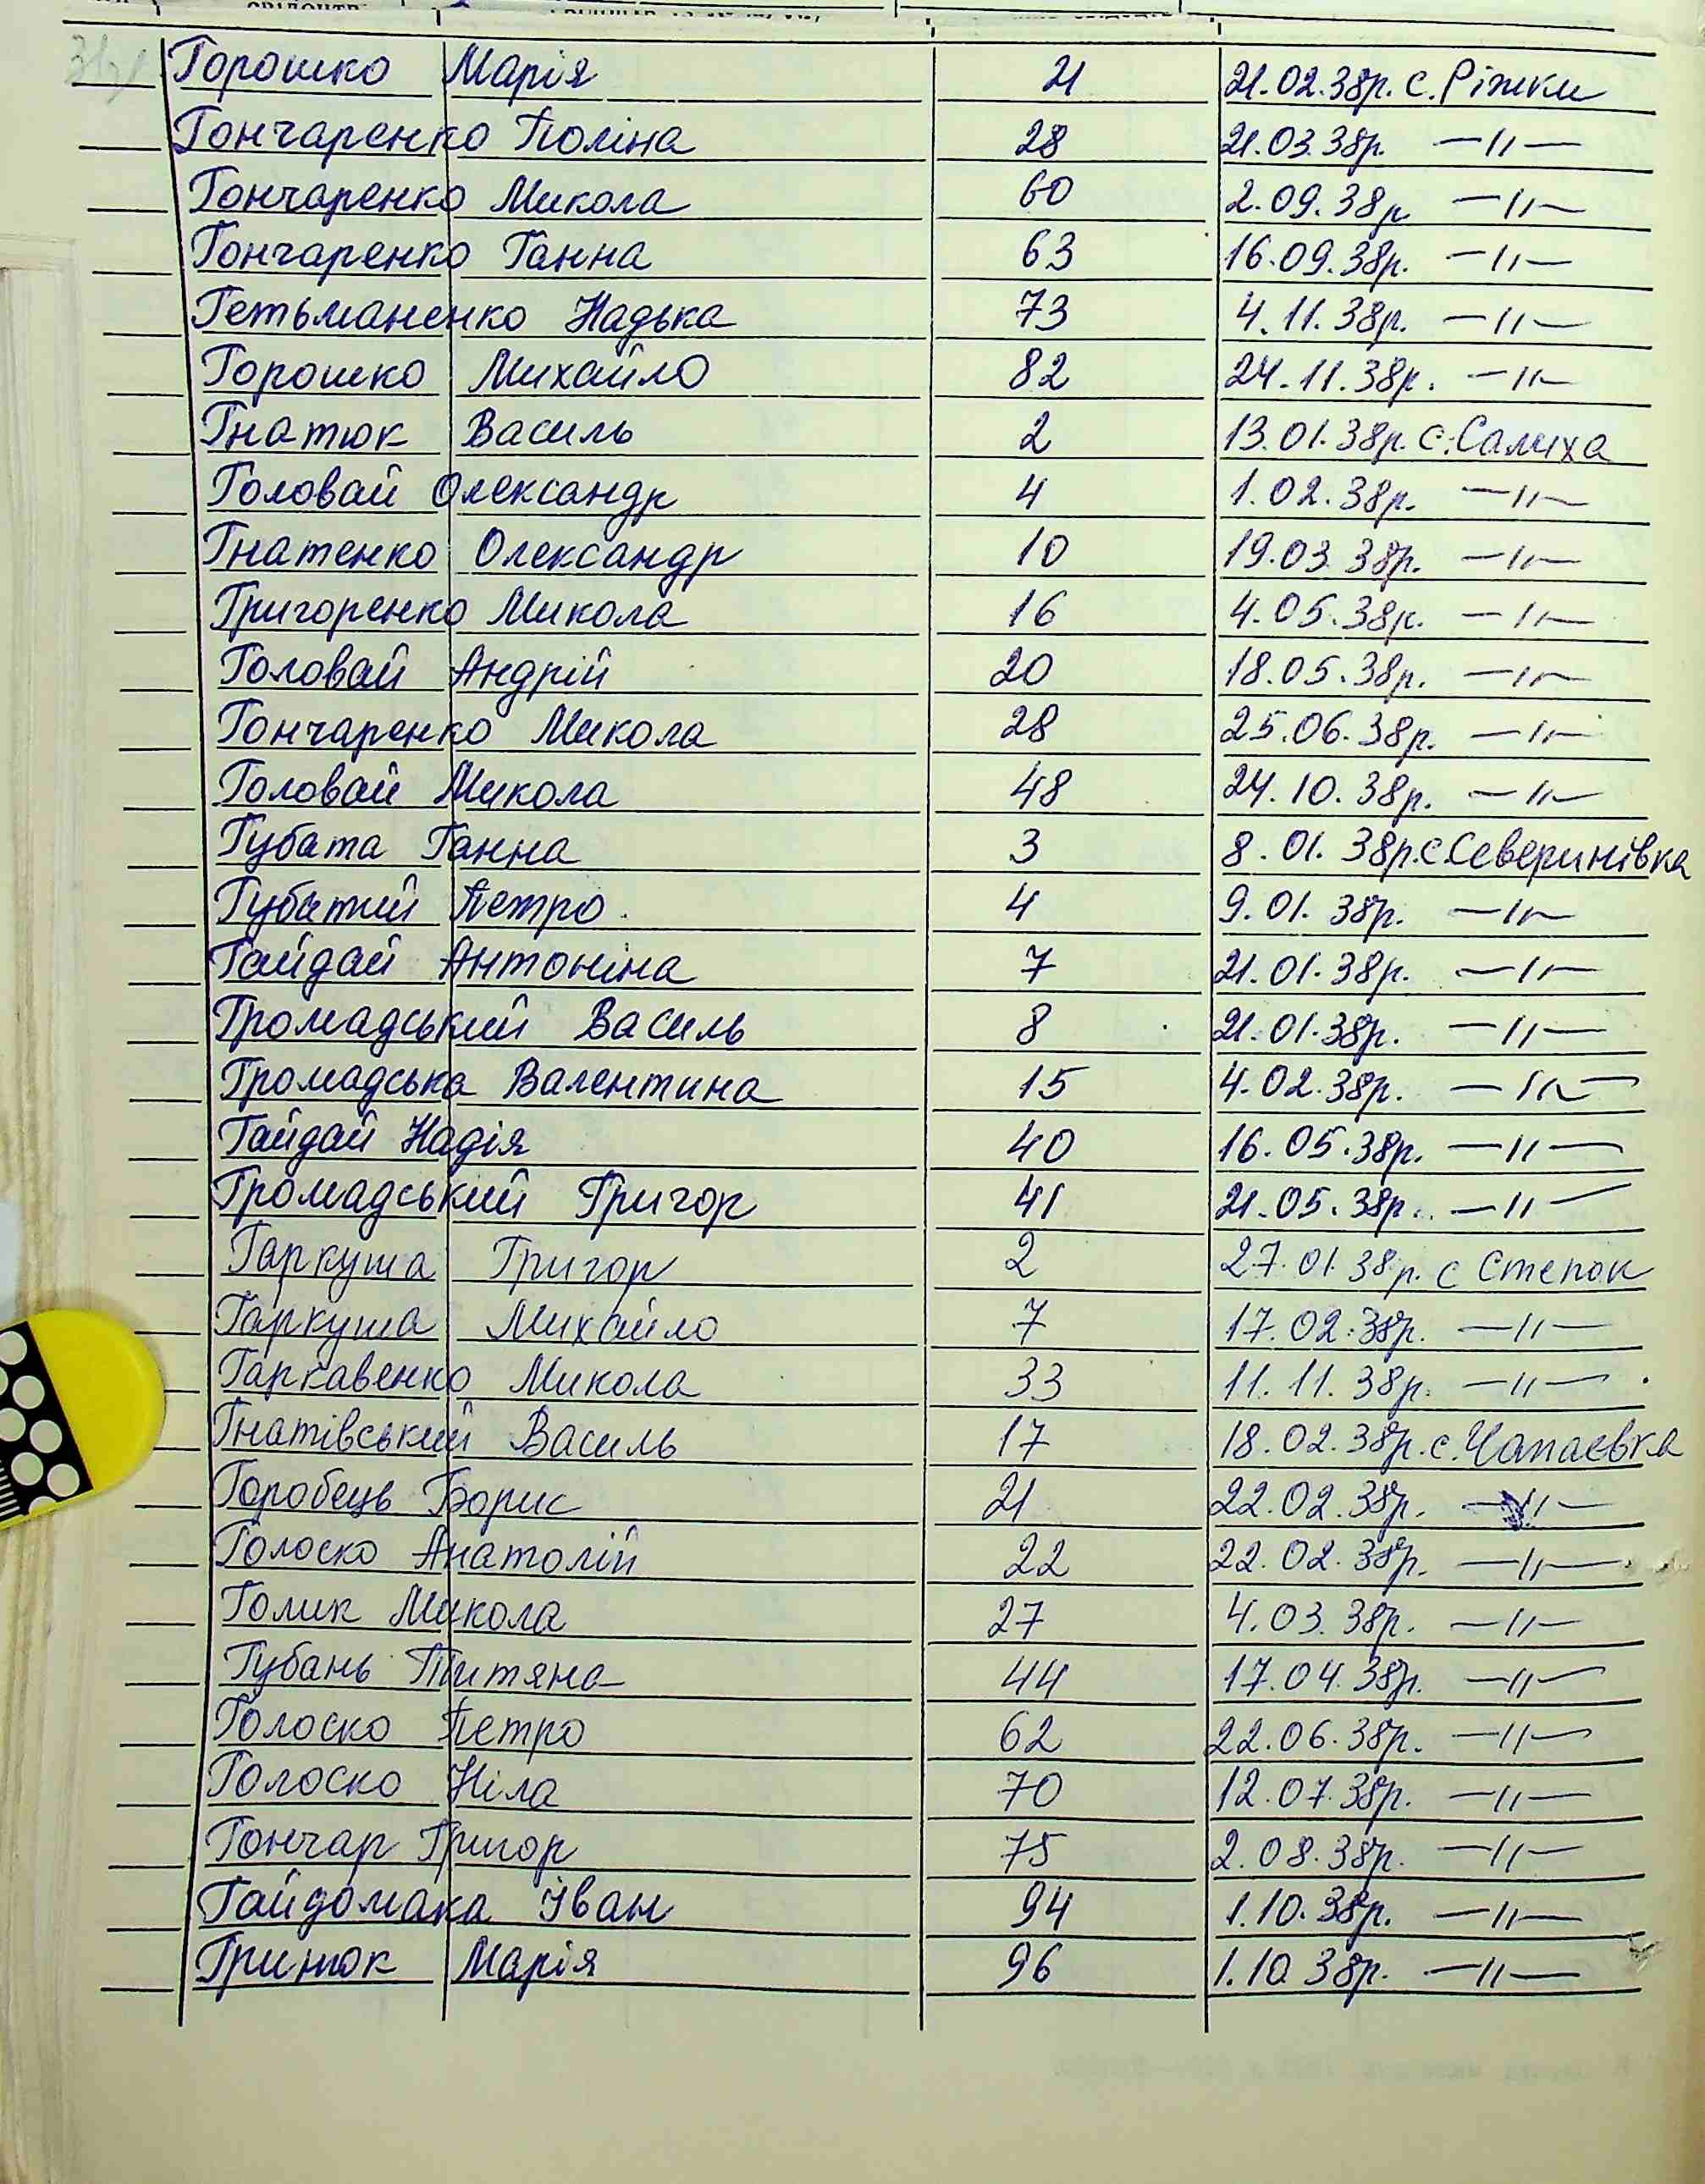 Горошко Марія 21 21.02.38р. с. Ріжки
Гончаренко Поліна 28 21.03.38р. —//—
Гончаренко Микола 60 2.09.38р —//—
Гончаренко Ганна 63 16.09.38р. —//—
Гетьманенко Надька 73 4.11.38р. —//—
Горошко Михайло 82 24.11.38р. —//—
Гнатюк Василь 2 13.01.38р. с. Салиха
Головай Олександр 4 1.02.38р. —//—
Гнатенко Олександр 10 19.03.38р. —//—
Григоренко Микола 16 4.05.38р. —//—
Головай Андрій 20 18.05.38р. —//—
Гончаренко Микола 28 25.06.38р. —//—
Головай Микола 48 24.10.38р. —//—
Губата Ганна 3 8.01.38р. с. Северинівка
Губатий Петро 4 9.01.38р. —//—
Гайдай Антоніна 7 21.01.38р. —//—
Громадський Василь 8 21.01.38р. —//—
Громадська Валентина 15 4.02.38р. —//—
Гайдай Надія 40 16.05.38р. —//—
Громадський Григор 41 21.05.38р. —//—
Гаркуша Григор 2 27.01.38р. с Степок
Гаркуша Михайло 7 17.02.38р. —//—
Гаркавенко Микола 33 11.11.38р. —//—
Гнатівський Василь 17 18.02.38р. с. Чапаєвка
Горобець Борис 21 22.02.38р. —//—
Голоско Анатолій 22 22.02.38р. —//—
Голик Микола 27 4.03.38р. —//—
Губань Титяна 44 17.04.38р. —//—
Голоско Петро 62 22.06.38р. —//—
Голоско Ніла 70 12.07.38р. —//—
Гончар Григор 75 2.08.38р. —//—
Гайдомака Іван 94 1.10.38р. —//—
Гринюк Марія 96 1.10.38р. —//—